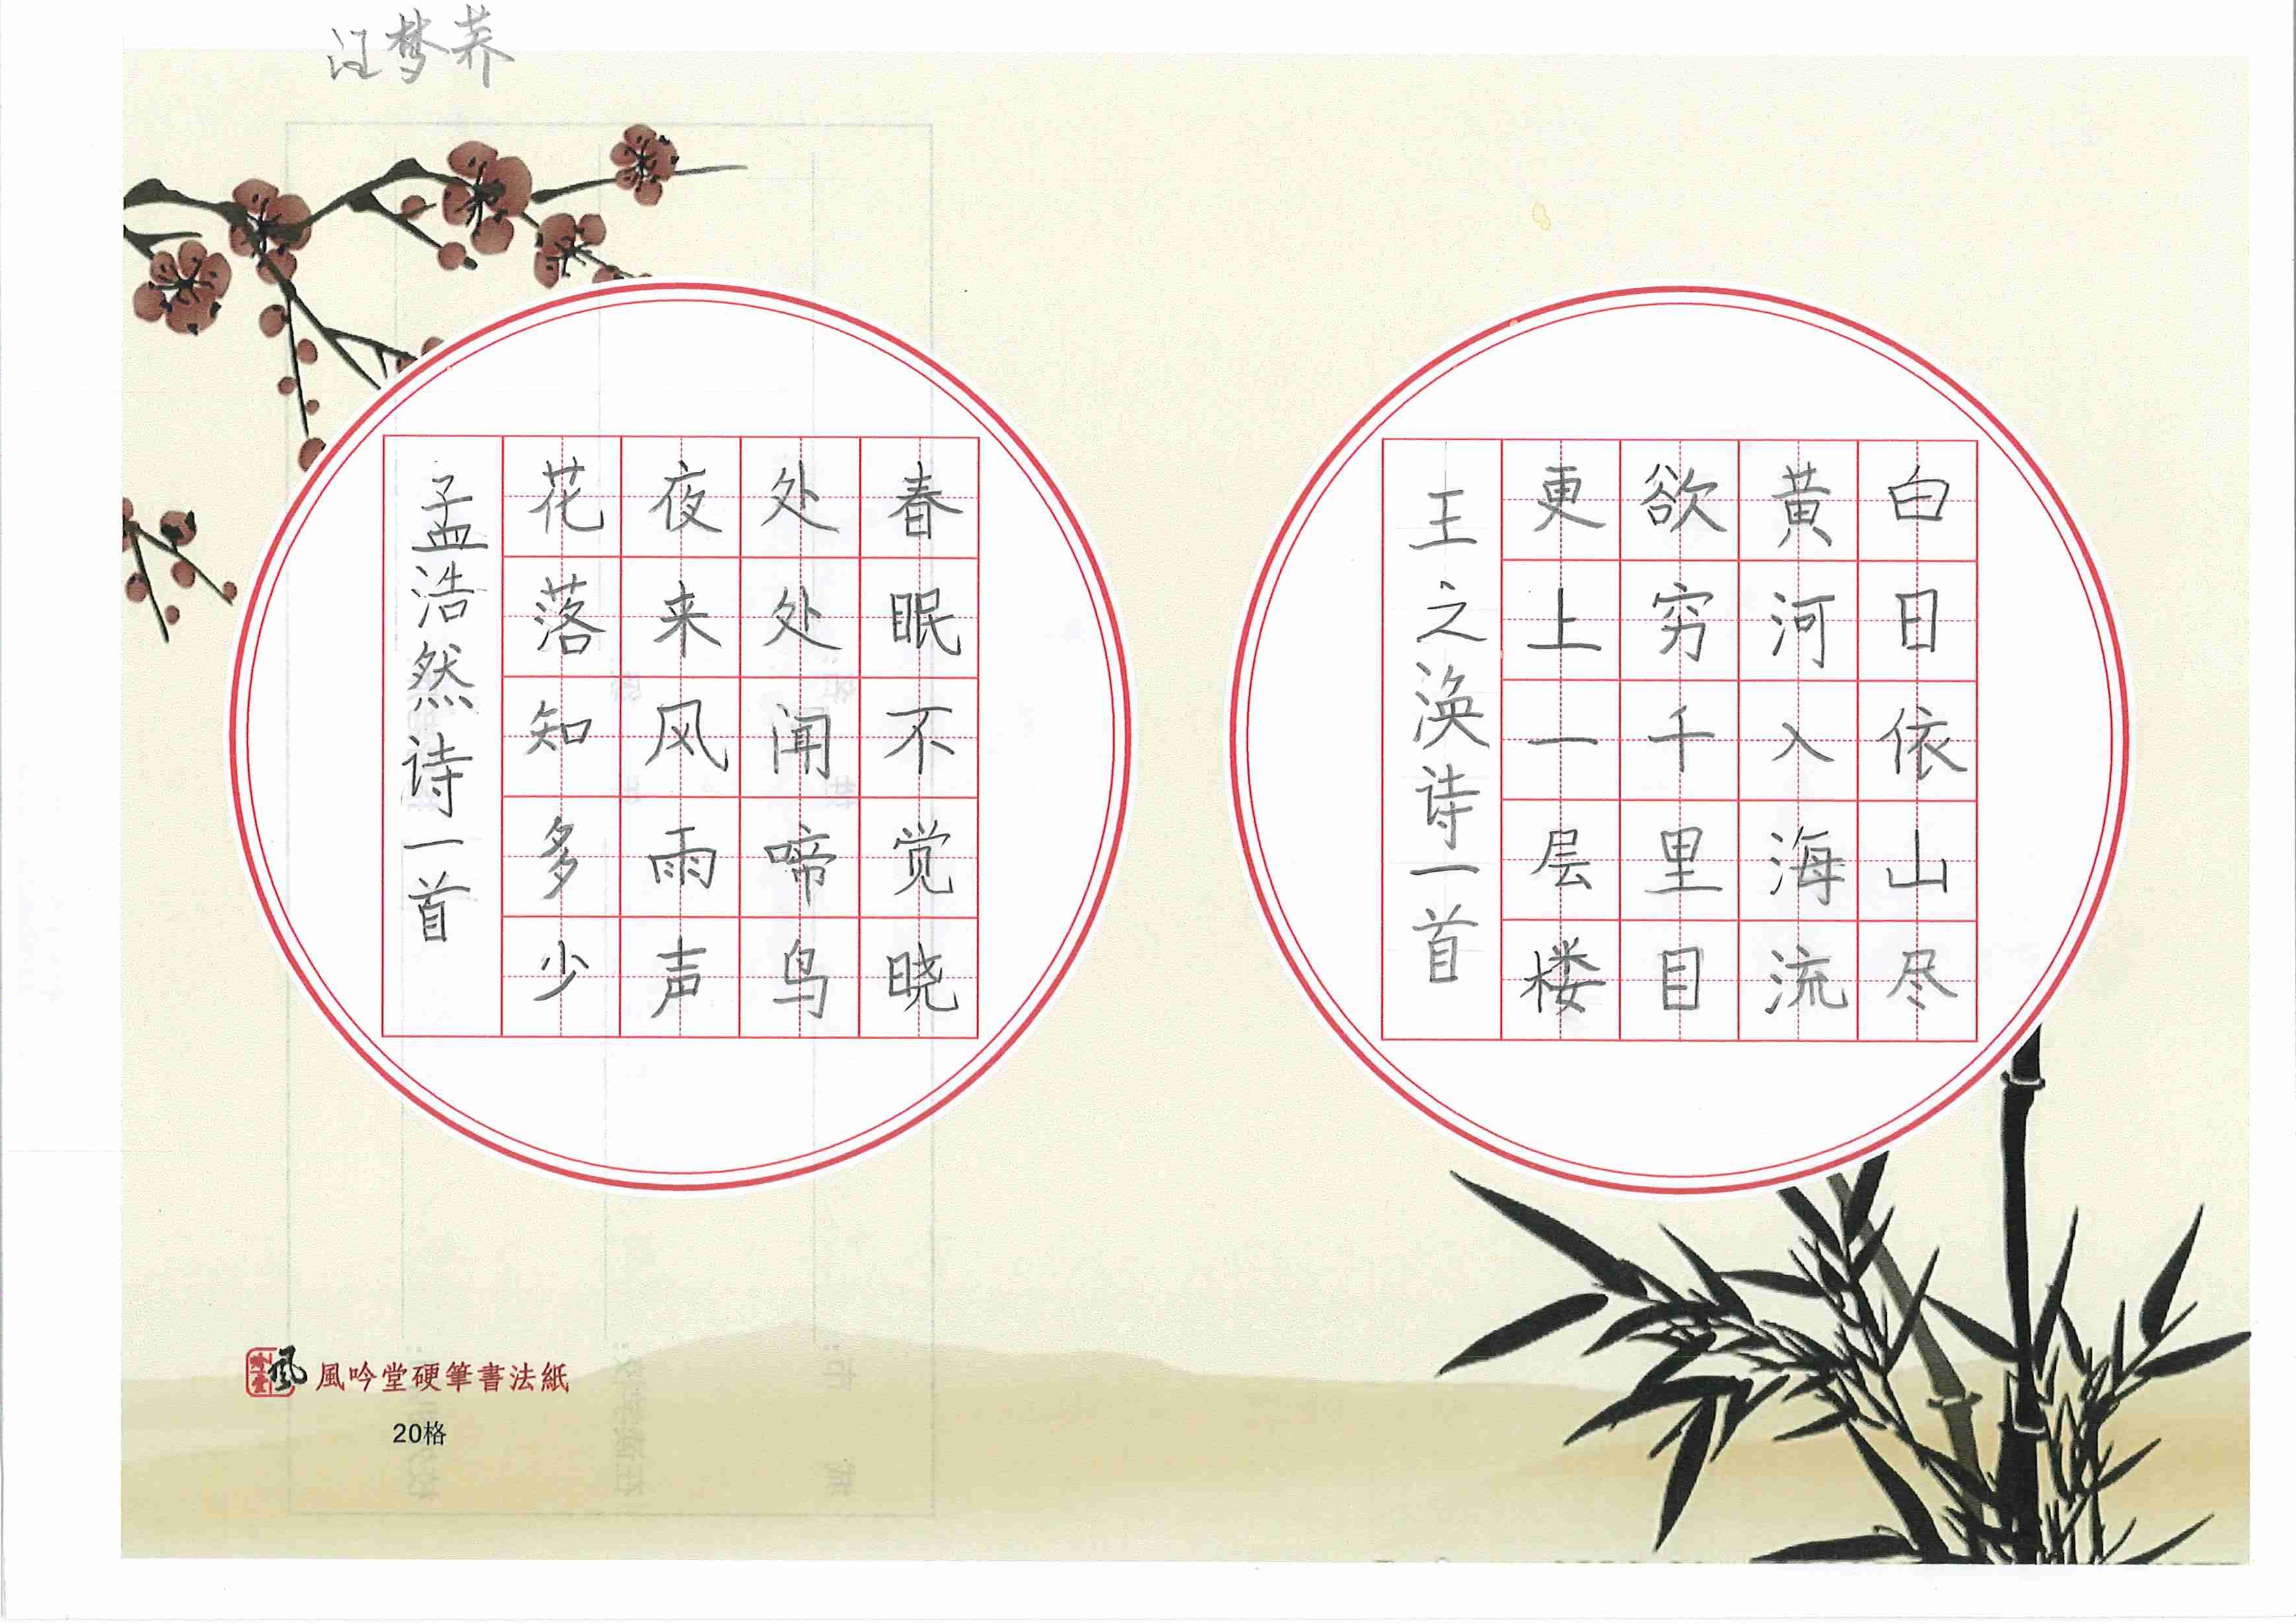 汪梦荞
白日依山尽
黄河入海流
欲穷千里目
更上一层楼
王之涣诗一首
春眠不觉晓
处处闻啼鸟
夜来风雨声
花落知多少
孟浩然诗一首
風吟堂硬筆書法紙
20格